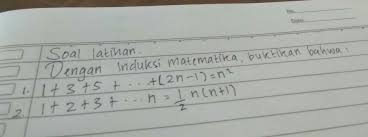 Soal latihan.
Dengan induksi matematika, buktikan bahwa:
1. 1+3+5+...+(2n-1)=n²
2. 1+2+3+...n=½n(n+1)